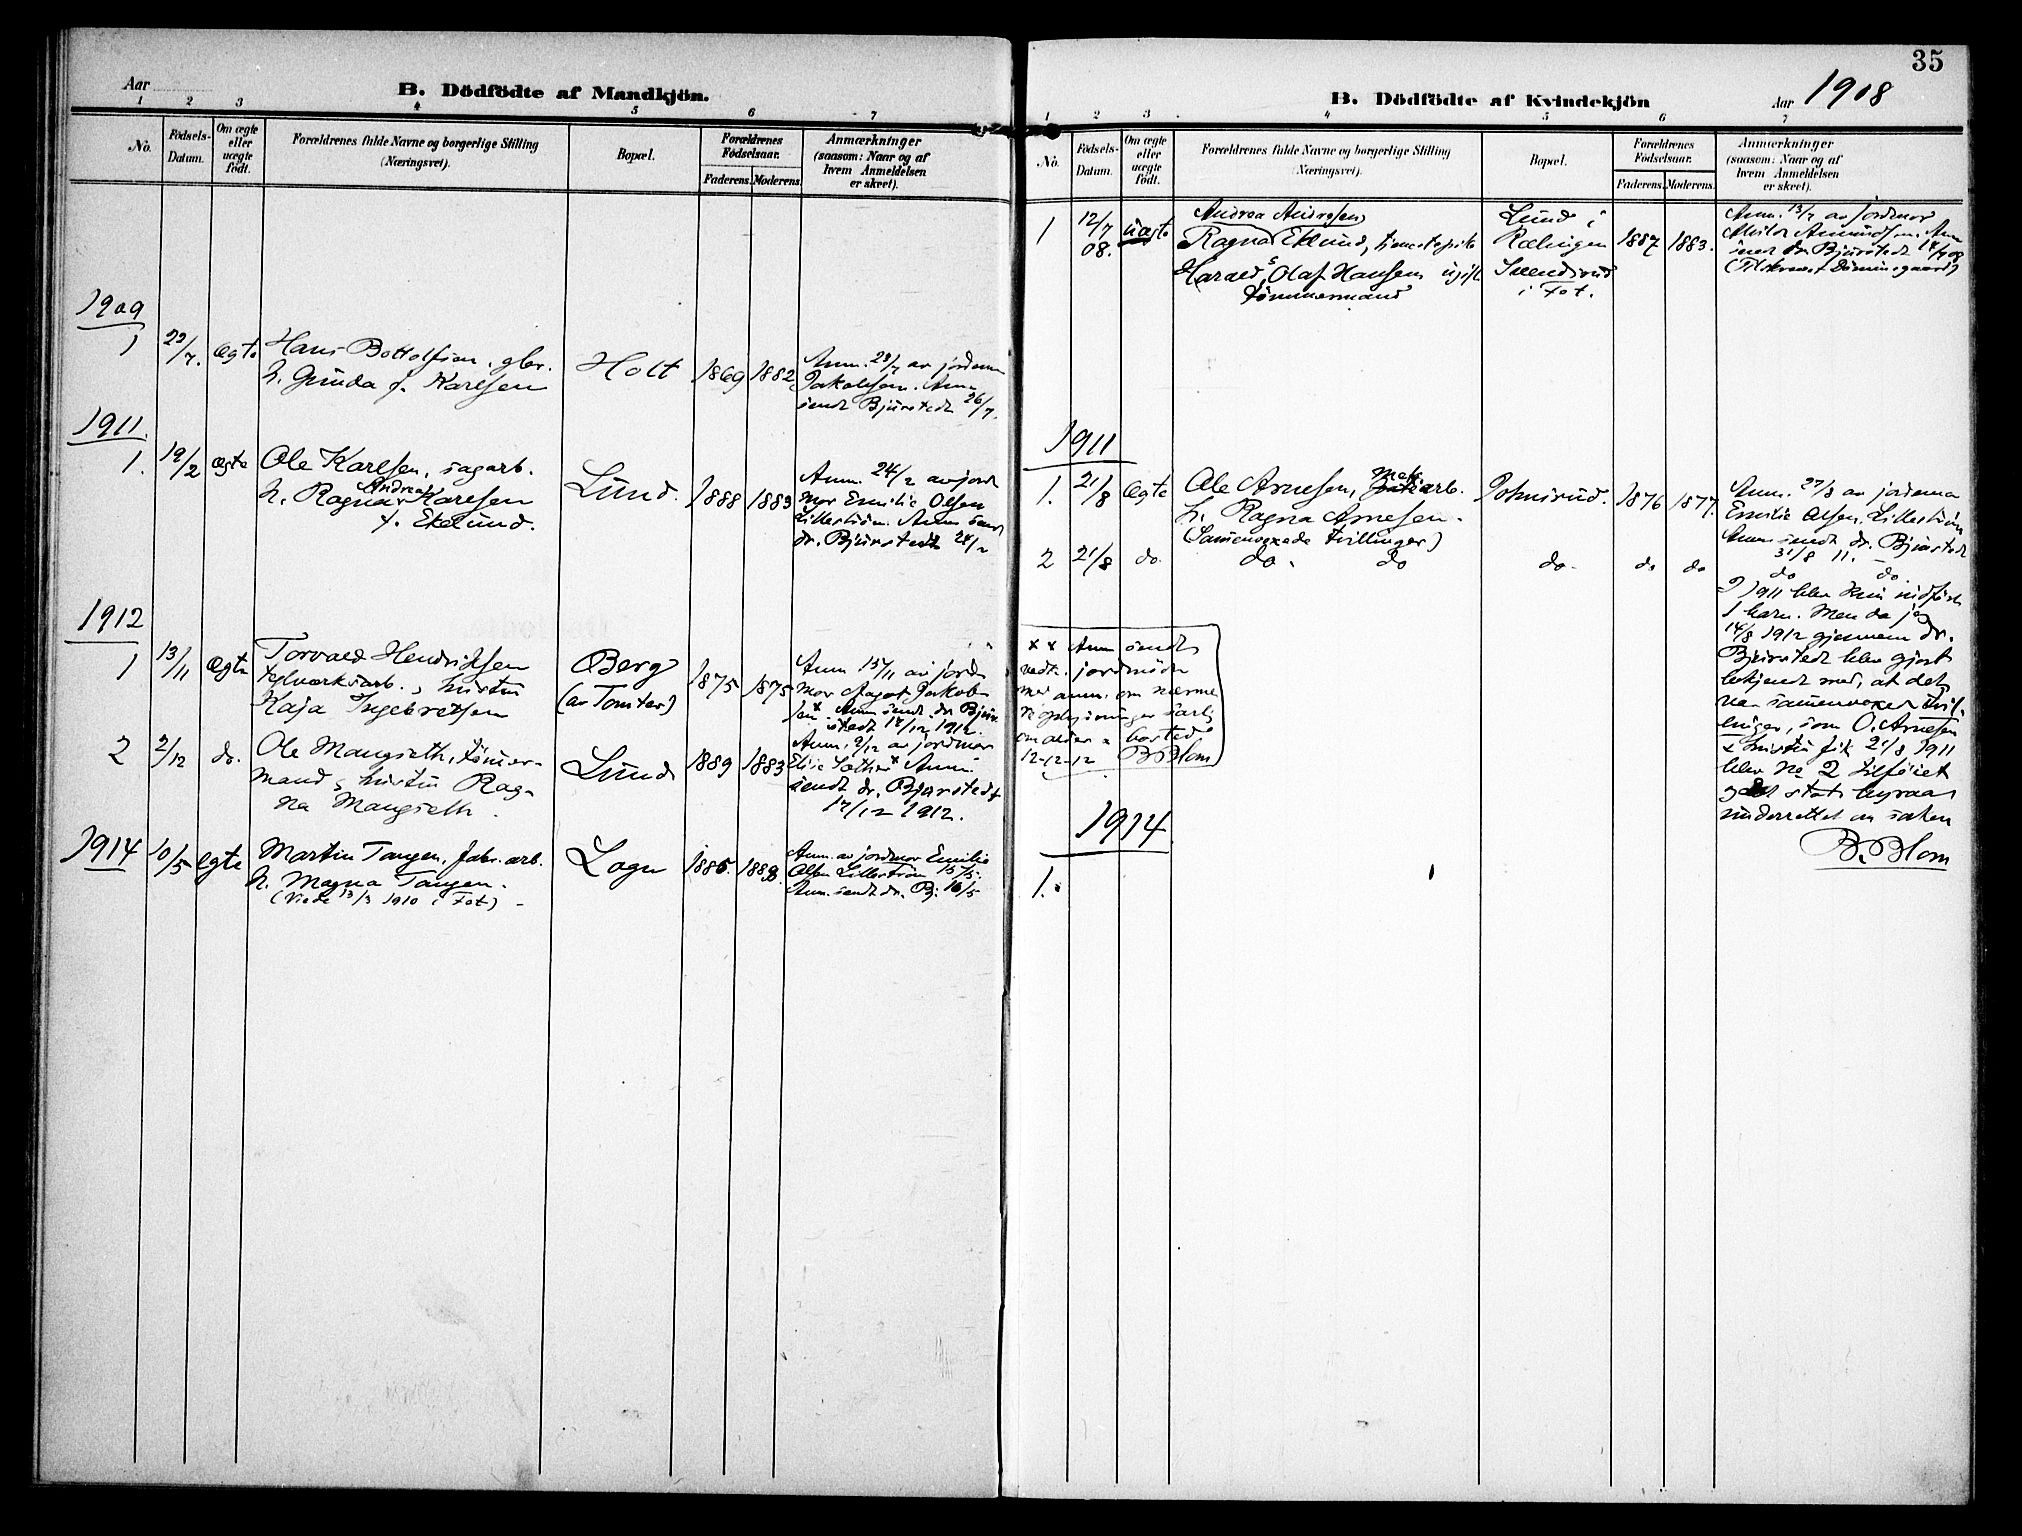 Aar
B. Dödfödte af Mandkjön.
1 2 3 4 5 6 7
No.
Födsels-Datum.
Om ægte eller uægte födt.
Forældrenes fulde Navne og borgerlige Stilling
(Næringsvei).
Bopæl.
Forældrenes Födselsaar.
Faderens. Moderens.
Anmærkninger
(saasom: Naar og af
hvem Anmeldelsen
er skeet).
1909
1 23/7. ægte Hans Bottolfsen, gbr.
h. Gunda f. Karlsen
Holt 1869 1882
Anm. 23/7 av jordm
Jakobsen. Anm
sendt Bjurstedt 26/7.
1911.
1. 19/2 ægte Ole Karlsen, sagarb.
h. Ragna Andrea Karlsen
f. Eklund.
Lund. 1888 1883
Anm. 24/2 av jord
mor Emilie Olsen
Lilleström. Anm send
dr. Bjurstedt 24/2
1912
1 13/11 ægte Torvald Hendriksen
teglværksarb., hustru
Kaja Ingebretsen
Berg
(av Tomter)
1875 1875
Anm 15/11 av jord
mor Aagot Jakob
sen x Anm sendt dr Bjur
stedt 17/12 1912.
2 2/12 do. Ole Mangseth, tömer-
mand, hustru Rag-
na Mangseth.
Lund 1889 1883
Anm. 9/12 av jordmor
Elise Sæther x Anm.
sendt dr. Bjurstedt
17/12 1912.
1914 10/5 ægte Martin Tangen, fabr. arb.
h. Magna Tangen.
(Viede 13/3 1910 i Fet) -
1886. 1888
Anm. av jordmor Emilie
Olsen Lilleström 15/5.
Anm. sendt dr. Bj. 16/5
35
B. Dödfödte af Kvindekjön
Aar 1908
1 2 3 4 5 6 7
No.
Födsels-Datum.
Om ægte eller uægte födt.
Forældrenes fulde Navne og borgerlige Stilling
(Næringsvei).
Bopæl.
Forældrenes Födselsaar.
Faderens. Moderens.
Anmærkninger
(saasom: Naar og af
hvem Anmeldelsen
er skeet).
1 12/7 08. uægte
Andrea Andresen
Ragna Eklund, tjenestepike
Harald Olaf Hansen ugift
tömmermand
Lund i
Rælingen
Svendsrud
i Fet.
1887 1883.
Anm. 13/7 av jordmor
Amundsen. Anm
sendt dr Bjurstedt 14/7 08
1911
1. 21/8 ægte Ole Arnesen, arb.
h. Ragna Arnesen.
(Sammenvoxede tvillinger)
Johnsrud. 1876 1877.
Anm. 27/8 av jordmor
Emilie Olsen, Lilleström
Anm sendt dr. Bjurstedt
31/8 11.
2 21/8 do. do. do do. do do
do do.
I 1911 blev kun indfört
1 barn. Men da jeg
14/8 1912 gjennem dr.
Bjurstedt blev gjort
bekjendt med, at det
var sammenvoxede tvil-
linger, som O. Arnesen
& hustru fik 21/8 1911
blev No 2 tilföiet
og det stat. byraa
underrettet om saken
B. Blom
x x Anm sendt
vedk. jordmödre
med anm. om nærme
re oplysninger særl.
om alder & bosted
12-12-12 B Blom
1914
1.